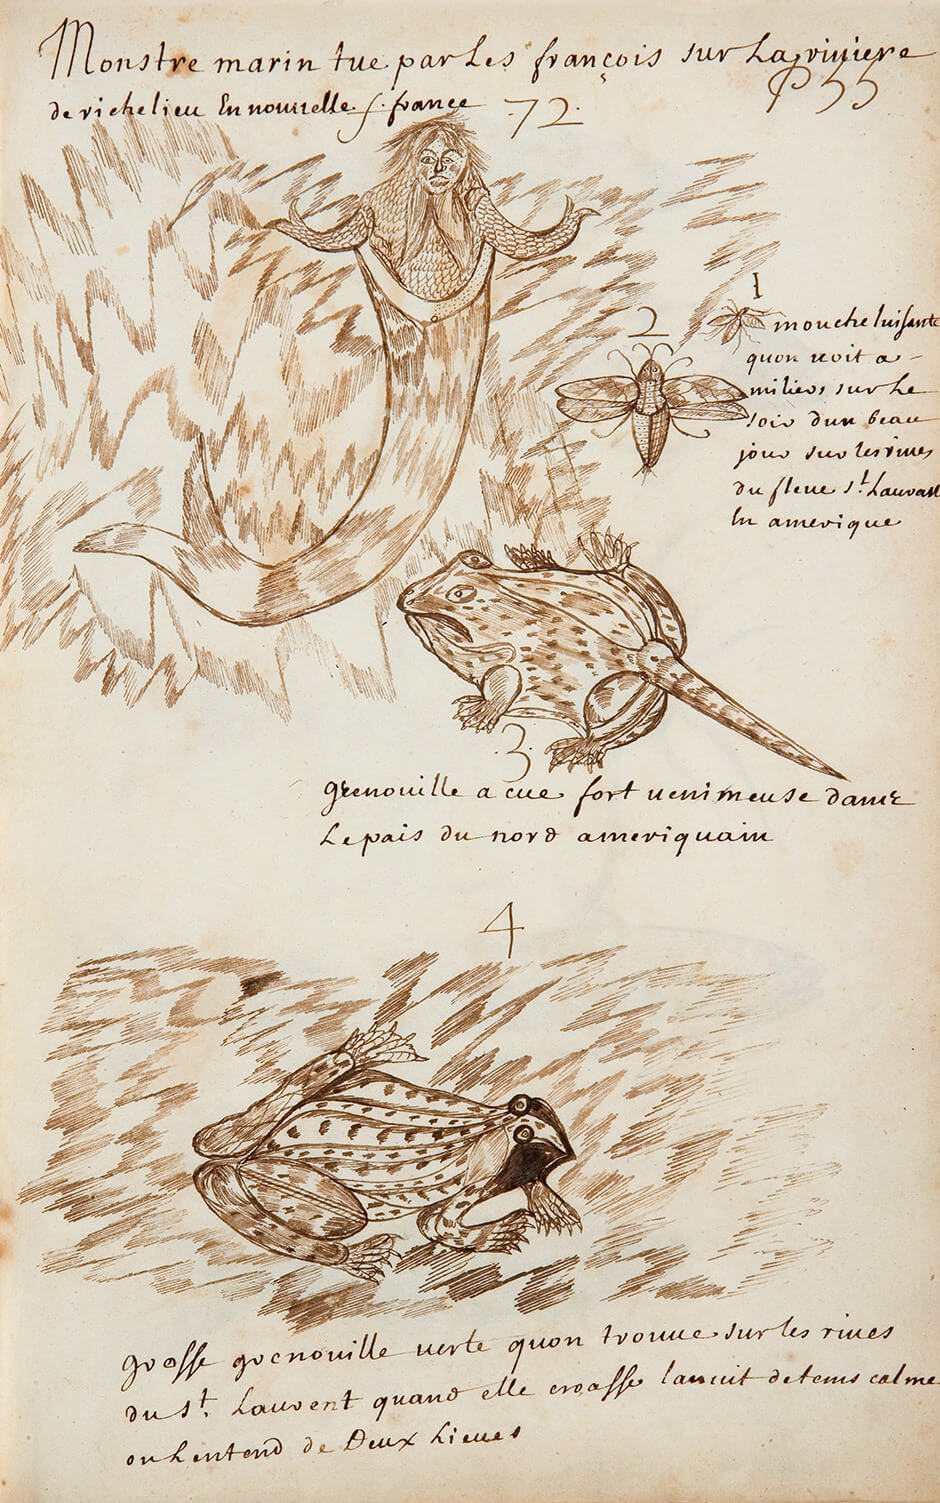 Monstre marin tue par Les françois sur La riviere
de richelieu En nouvelle f. france
P 55
72.
1
mouche luisante
quon voit a
miliers sur Le
soir dun beau
jour sur les rives
du fleuve st. Lauvant
En amerique
2
3
grenouille a cue fort venimeuse dans
Le pais du nord ameriquain
4
grosse grenouille verte quon trouve sur les rives
du st. Lauvent quand elle croasse la nuit de tems calme
on Lentend de Deux Lieues